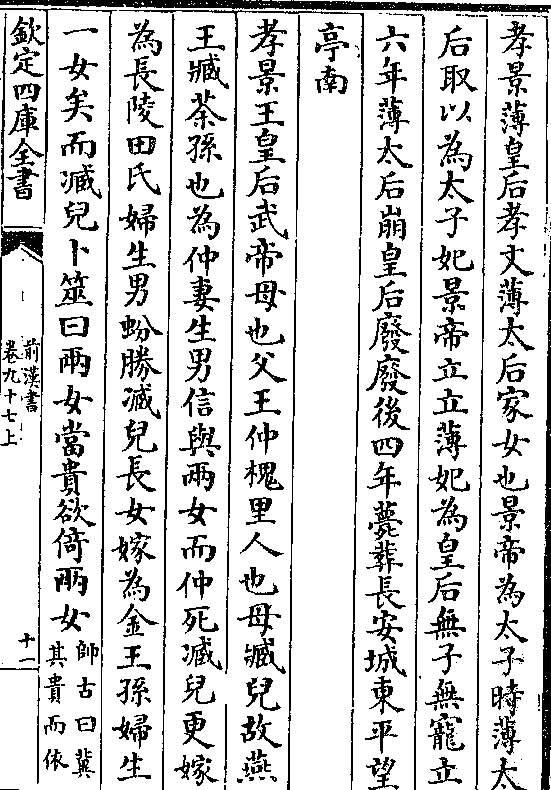 孝景薄皇后孝文薄太后家女也景帝為太子時薄太
后取以為太子妃景帝立立薄妃為皇后無子無寵立
六年薄太后崩皇后廢廢後四年薨葬長安城東平望
亭南
孝景王皇后武帝母也父王仲槐里人也母臧兒故燕
王臧荼孫也為仲妻生男信與兩女而仲死臧兒更嫁
為長陵田氏婦生男蚡勝臧兒長女嫁為金王孫婦生
一女矣而臧兒卜筮曰兩女當貴欲倚兩女
師古曰冀
其貴而依
欽定四庫全書
前漢書
卷九十七上
十一